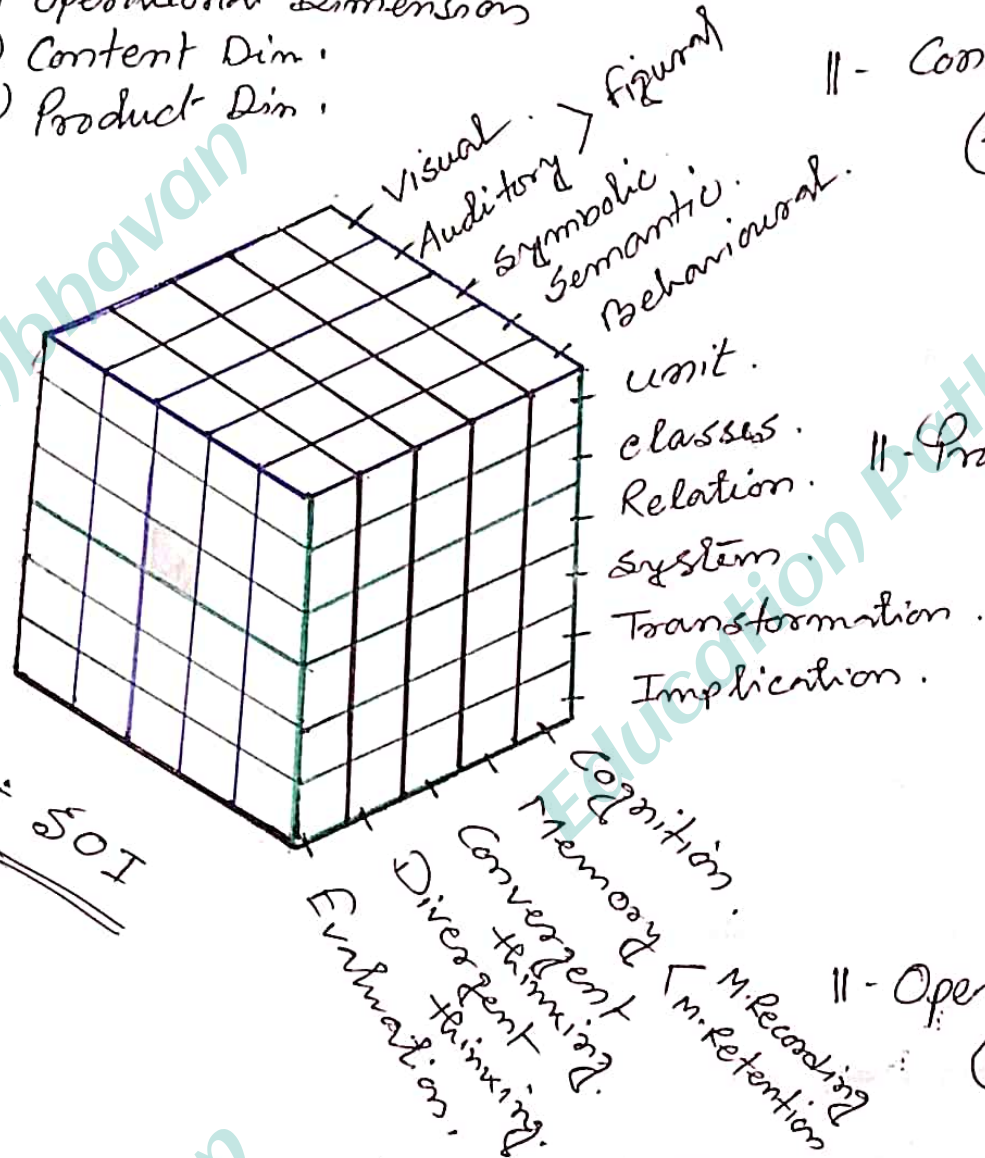 Operational Dimension
) Content Dim.
) Product Dim.
Visual.
Auditory > figural
Symbolic
Semantic.
Behavioural.
|| - Con
unit.
classes.
Relation.
|| -
System.
Transformation.
Implication.
: SOI
Cognition.
Memory
M. Recording
M. Retention
Convergent
thinking.
Divergent
thinking.
Evaluation.
|| - Oper
bhavan
Education Path